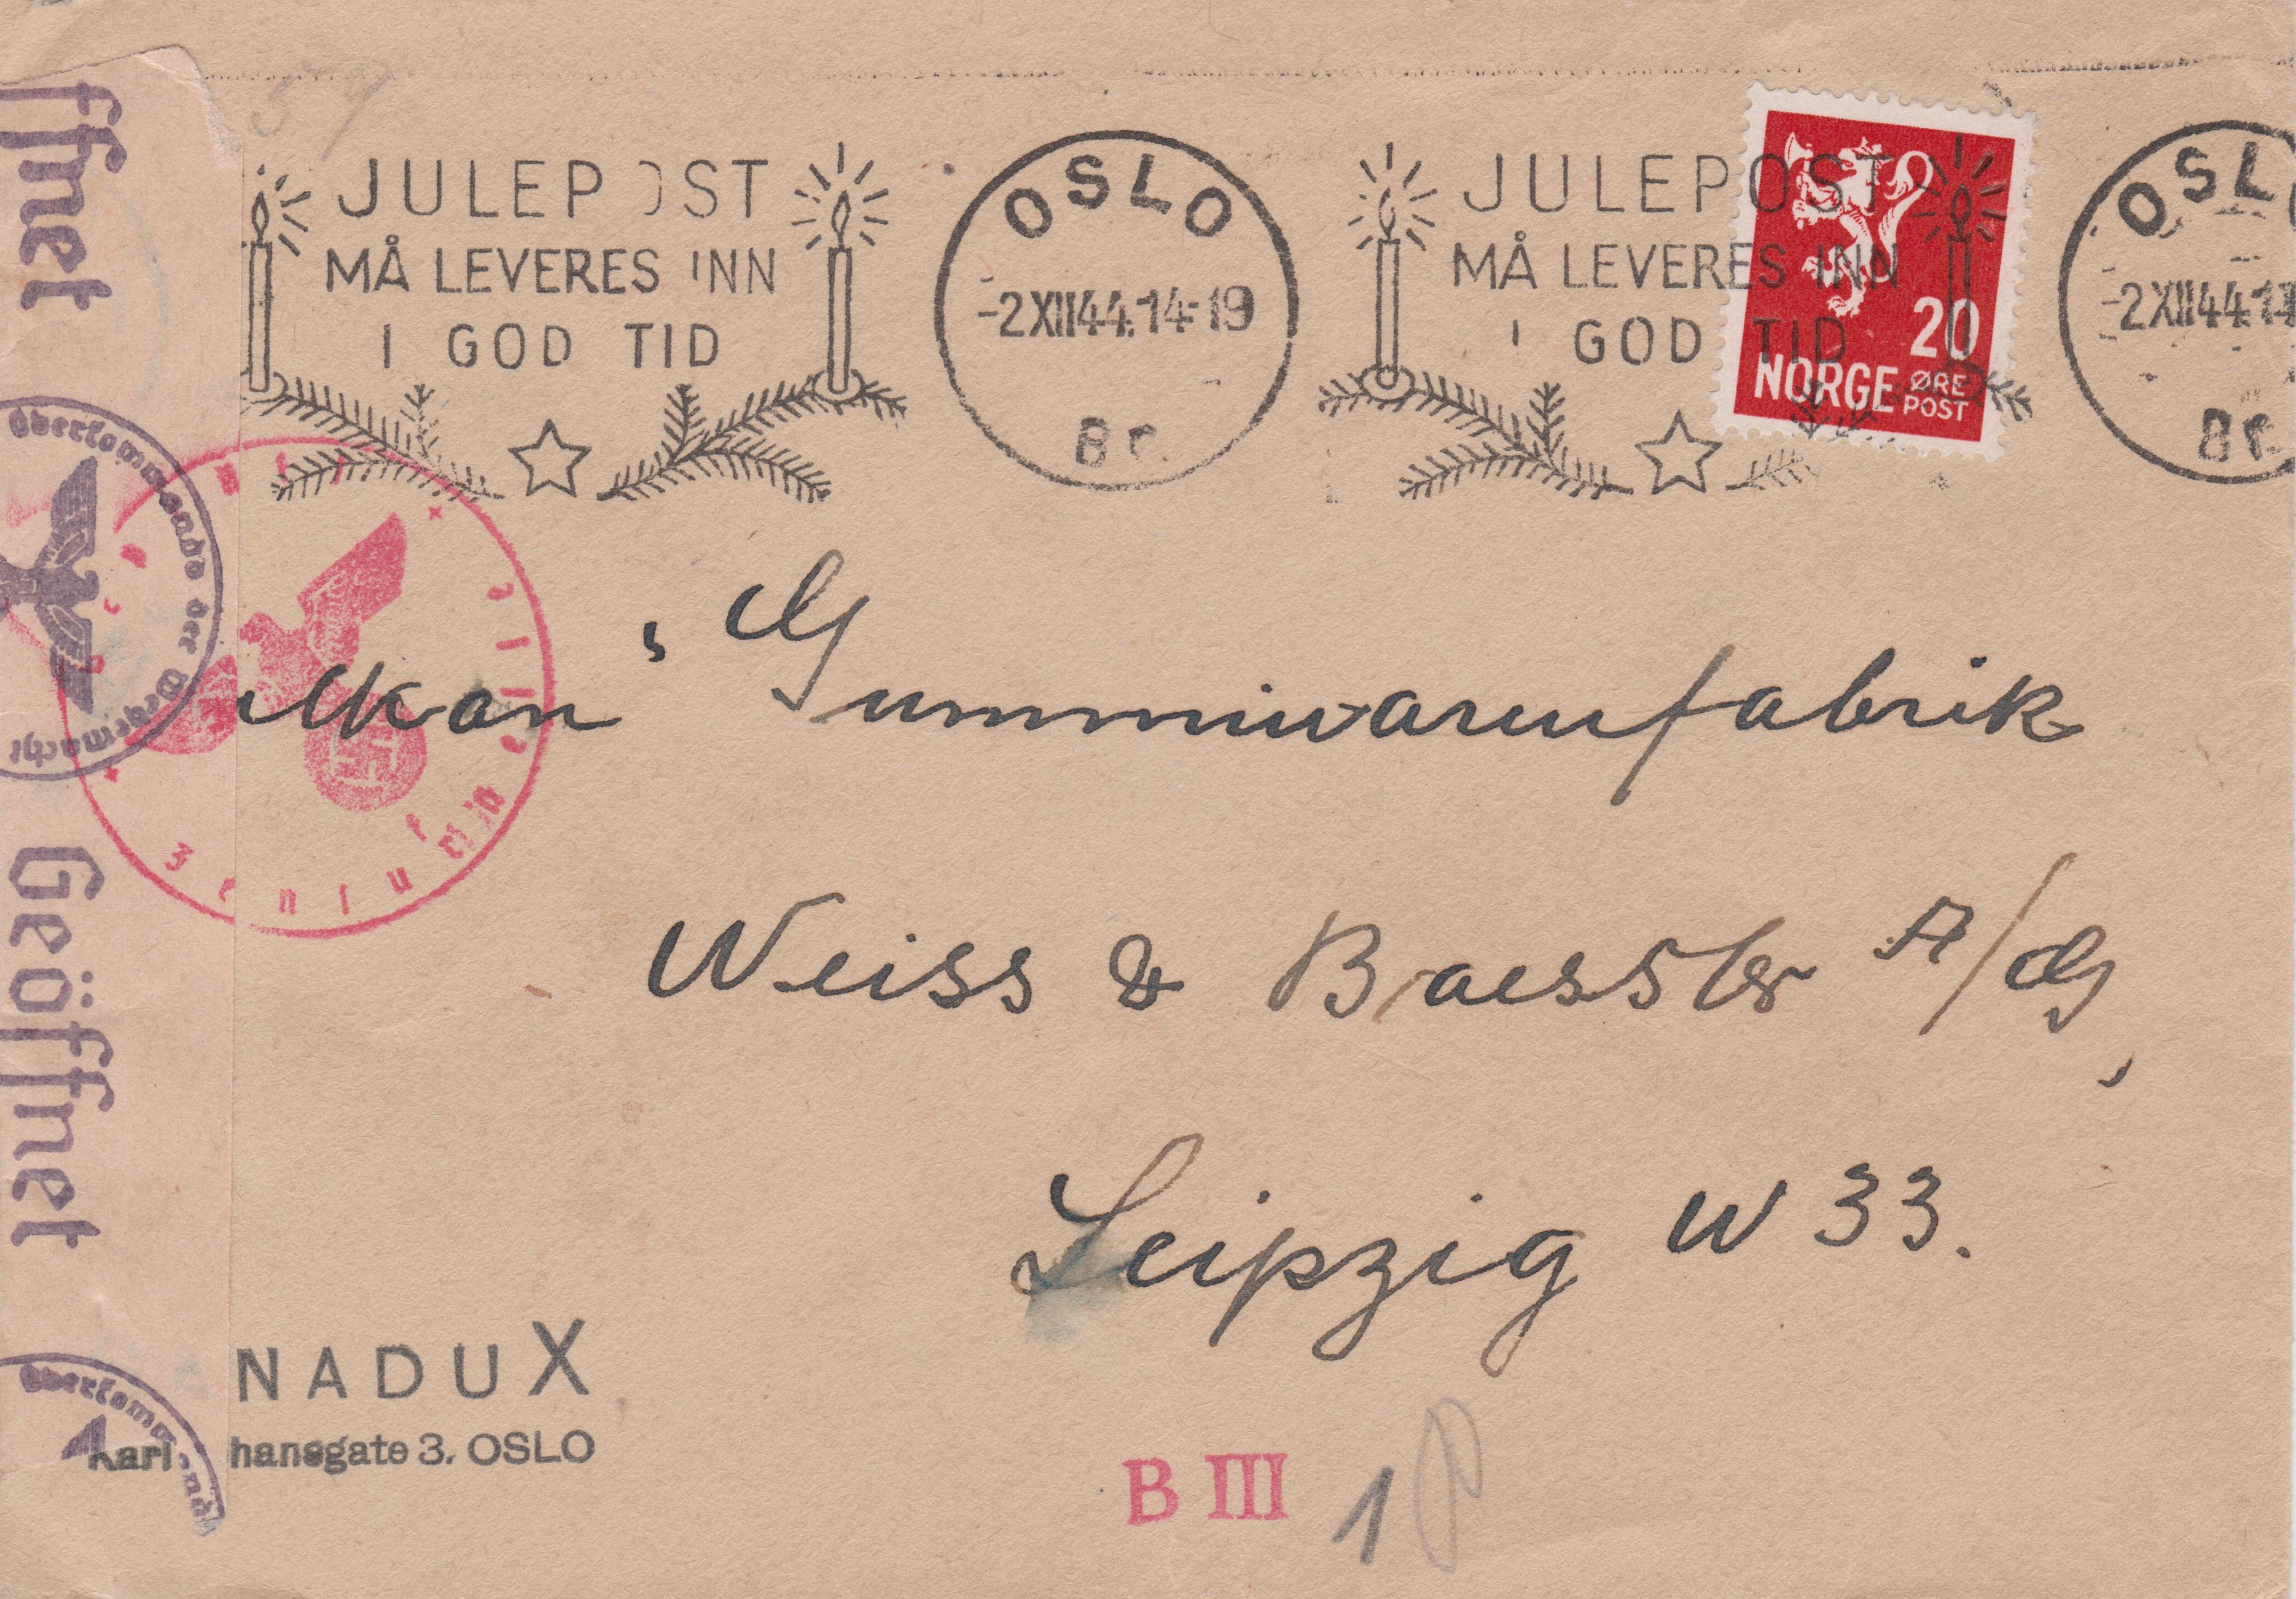 JULEPOST
MÅ LEVERES INN
I GOD TID
OSLO
-2XII44.14-19
8c
JULEPOST
MÅ LEVERES INN
I GOD TID
20
NORGE ØRE
POST
OSL
-2XII44.1
8c
ffnet
Oberkommando der Wehrmacht
Geöffnet
Oberkommand
lkan" Gummiwarenfabrik
Weiss & Baessler A/G,
Leipzig W 33.
NADUX
Karl hansgate 3. OSLO
B III 1